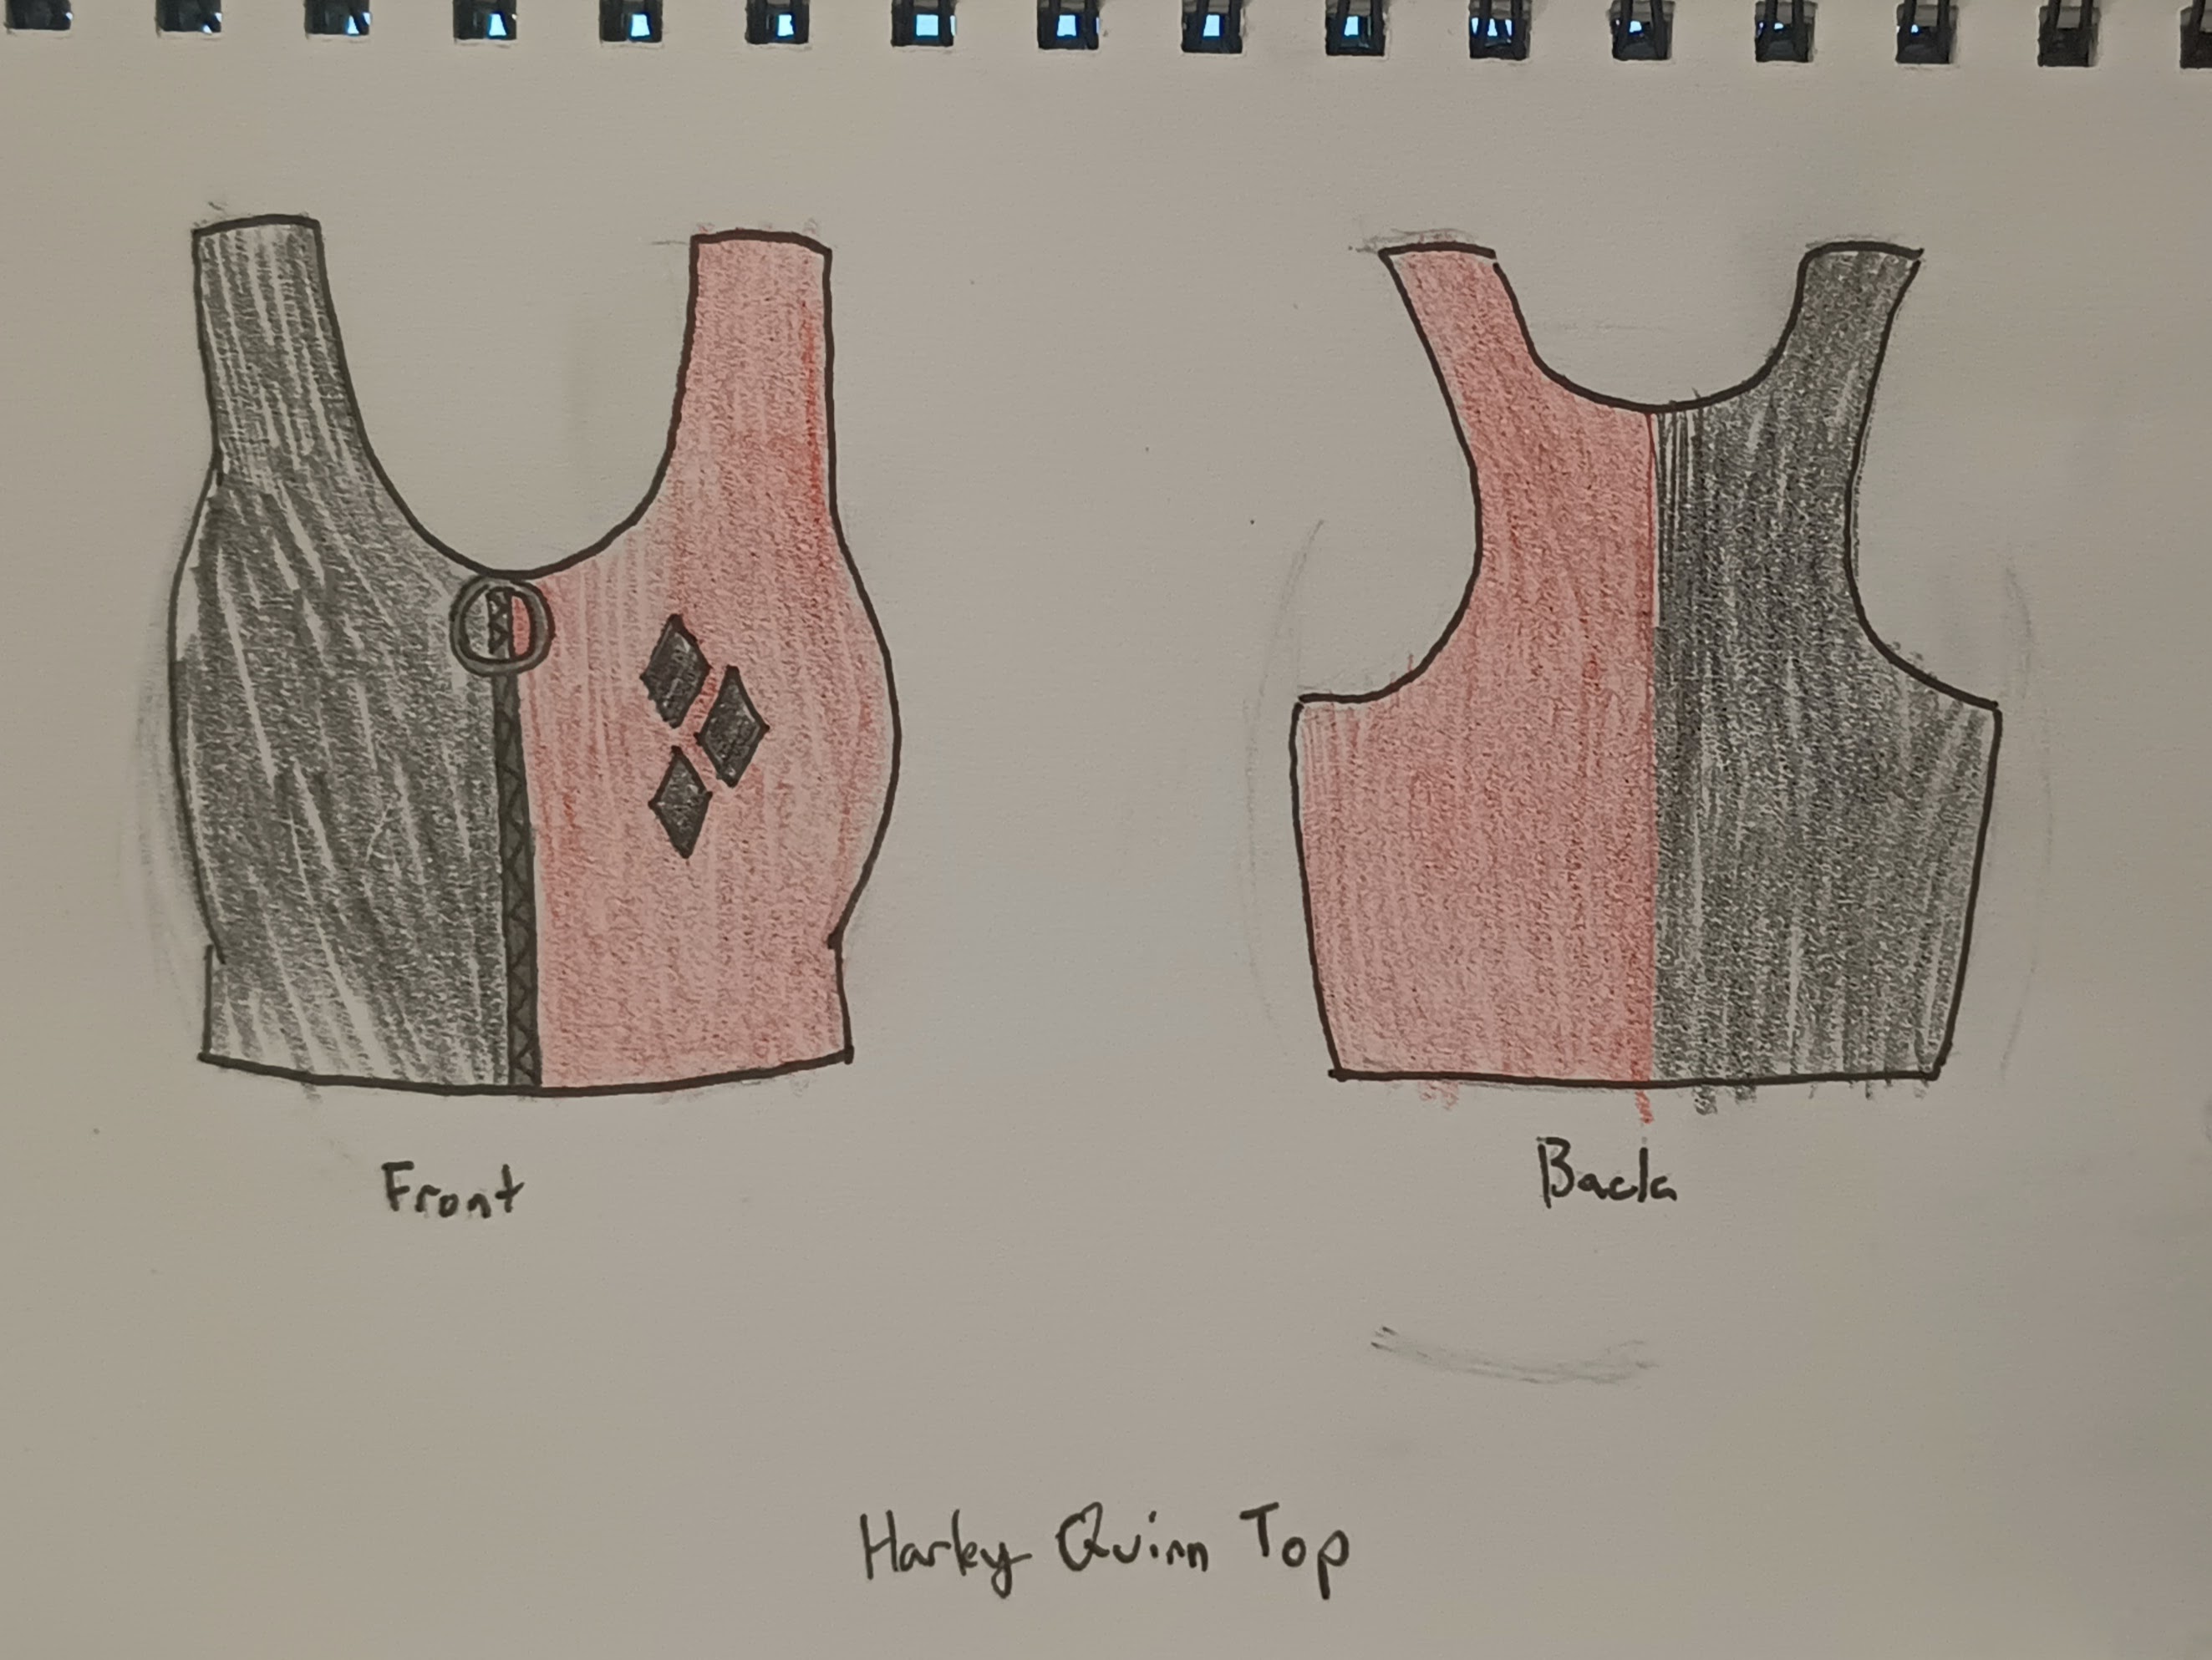 Front
Back
Harley Quinn Top